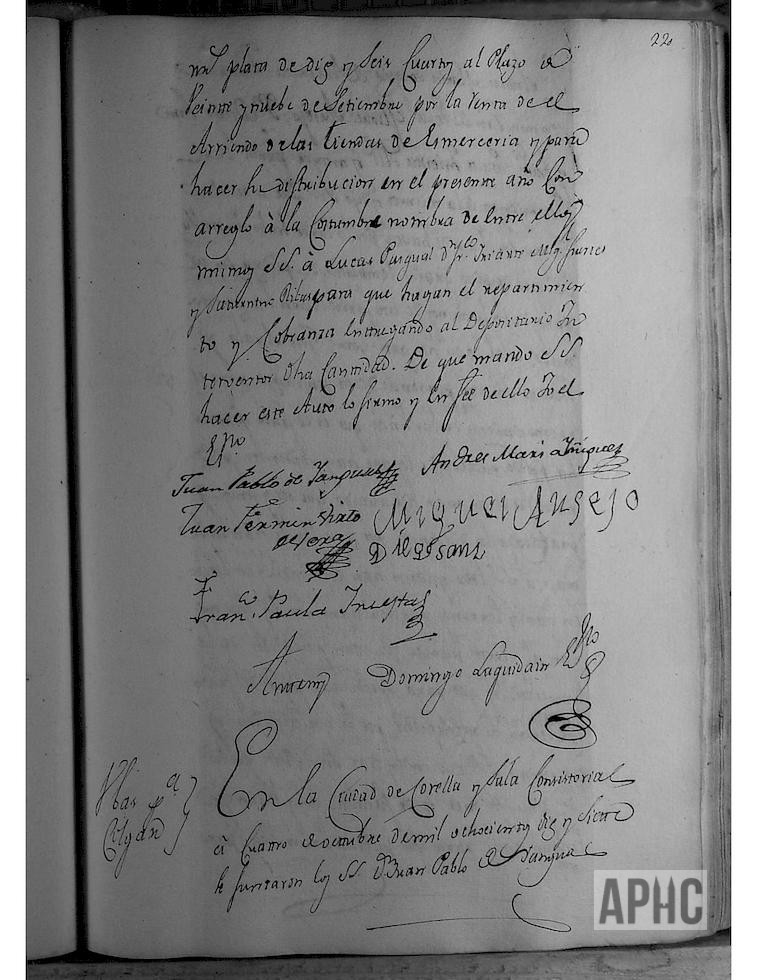 220
rs plata de diez y seis Cuartos al Plazo de
Veinte y nuebe de Setiembre por la Venta de el
Arriendo de las tiendas de Esmerceria y para
hacer su distribucion en el presente año Con
arreglo à la Costumbre nombra de entre ellos
mismos SS. à Lucas Pasqual
y Saturnino Ribas para que hagan el repartimien
to y Cobranza entregando al Depositario In
terventor dha Cantidad. De que mando SS.
hacer este Auto lo firmo y en fee de ello Yo el
Essno
Juan Pablo de Yanguas Andres Maria Yñiguez
Juan Fermin Virto
de Vera Miguel Ansejo
Diego Sanz
Franco Paula Yncesta
Antemi Domingo Laquidain Essno
En la Ciudad de Corella y Sala Consistorial
à Cuatro de octubre de mil ochocientos diez y siete
se juntaron los SS. Dn Juan Pablo de Yanguas
APHC